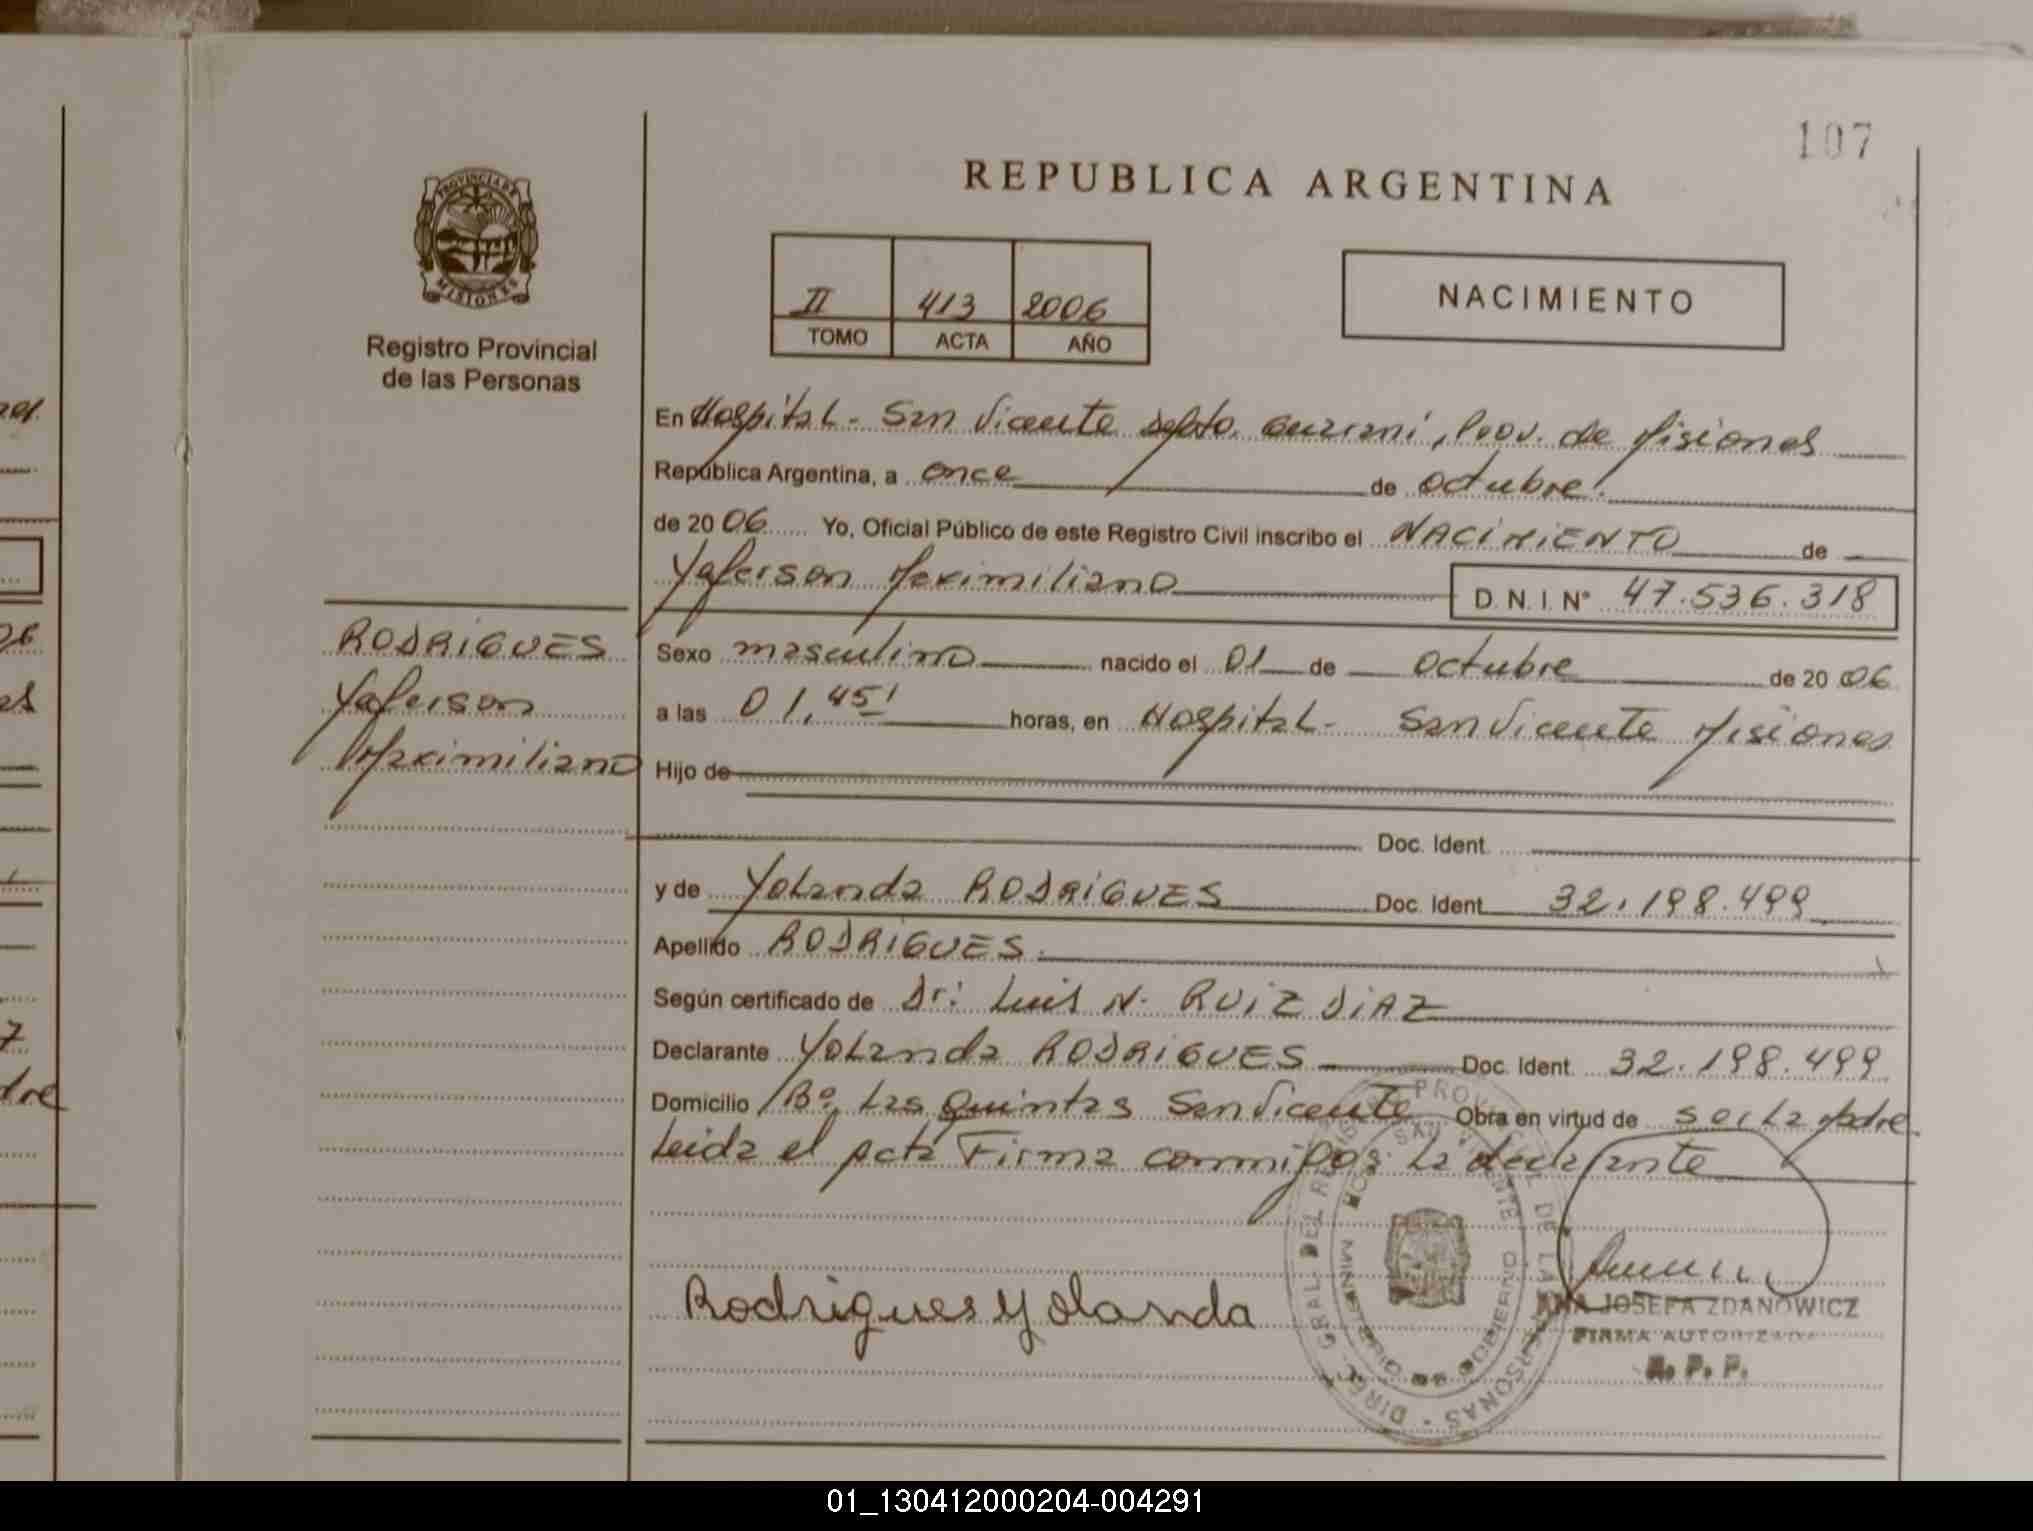 107
REPUBLICA ARGENTINA
PROVINCIA DE MISIONES
Registro Provincial
de las Personas
II 413 2006
TOMO ACTA AÑO
NACIMIENTO
En Hospital - San Vicente Depto. Guarani, Prov. de Misiones
República Argentina, a once de octubre.
de 2006 Yo, Oficial Público de este Registro Civil inscribo el NACIMIENTO de
Yaferson Maximiliano D.N.I. Nº 47.536.318
RODRIGUES
Yaferson
Maximiliano
Sexo masculino nacido el 01 de octubre de 2006
a las 01,45' horas, en Hospital - San Vicente Misiones
Hijo de
Doc. Ident.
y de Yolanda RODRIGUES Doc. Ident. 32.198.499
Apellido RODRIGUES.
Según certificado de Dr: Luis N. RUIZ DIAZ
Declarante Yolanda RODRIGUES Doc. Ident. 32.198.499
Domicilio Bº Las Quintas San Vicente Obra en virtud de ser la Madre.
Leida el acta Firma conmigo: la declarante
Rodrigues Yolanda
ANA JOSEFA ZDANOWICZ
FIRMA AUTORIZADA
R. P. P.
01_130412000204-004291